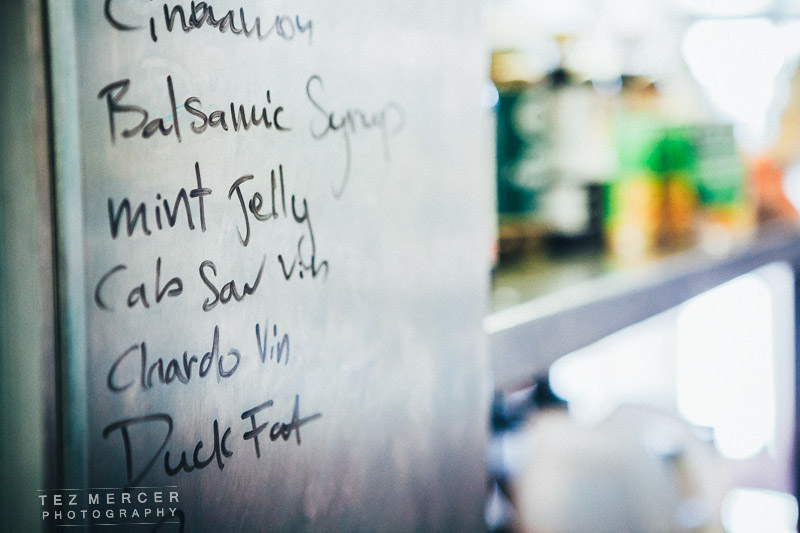 Cinnamon
Balsamic Syrup
mint Jelly
Cab Sav Vin
Chardo Vin
Duck Fat
TEZ MERCER
PHOTOGRAPHY